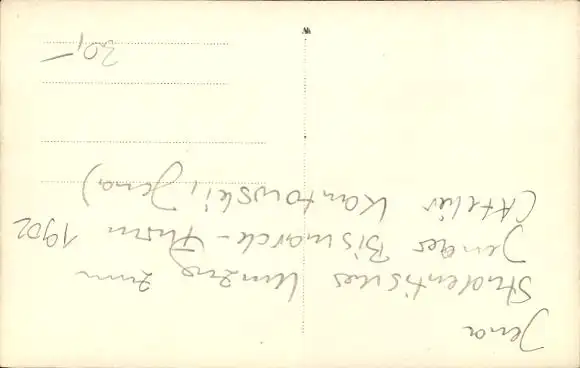 Jena
Studentisches Umzug zum
Jenaer Bismarck-Turm 1902
(Atelier Kantowski, Jena)
30,-